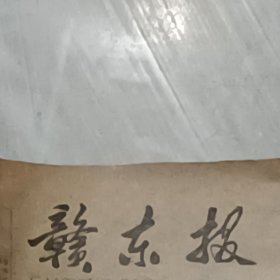 赣东报